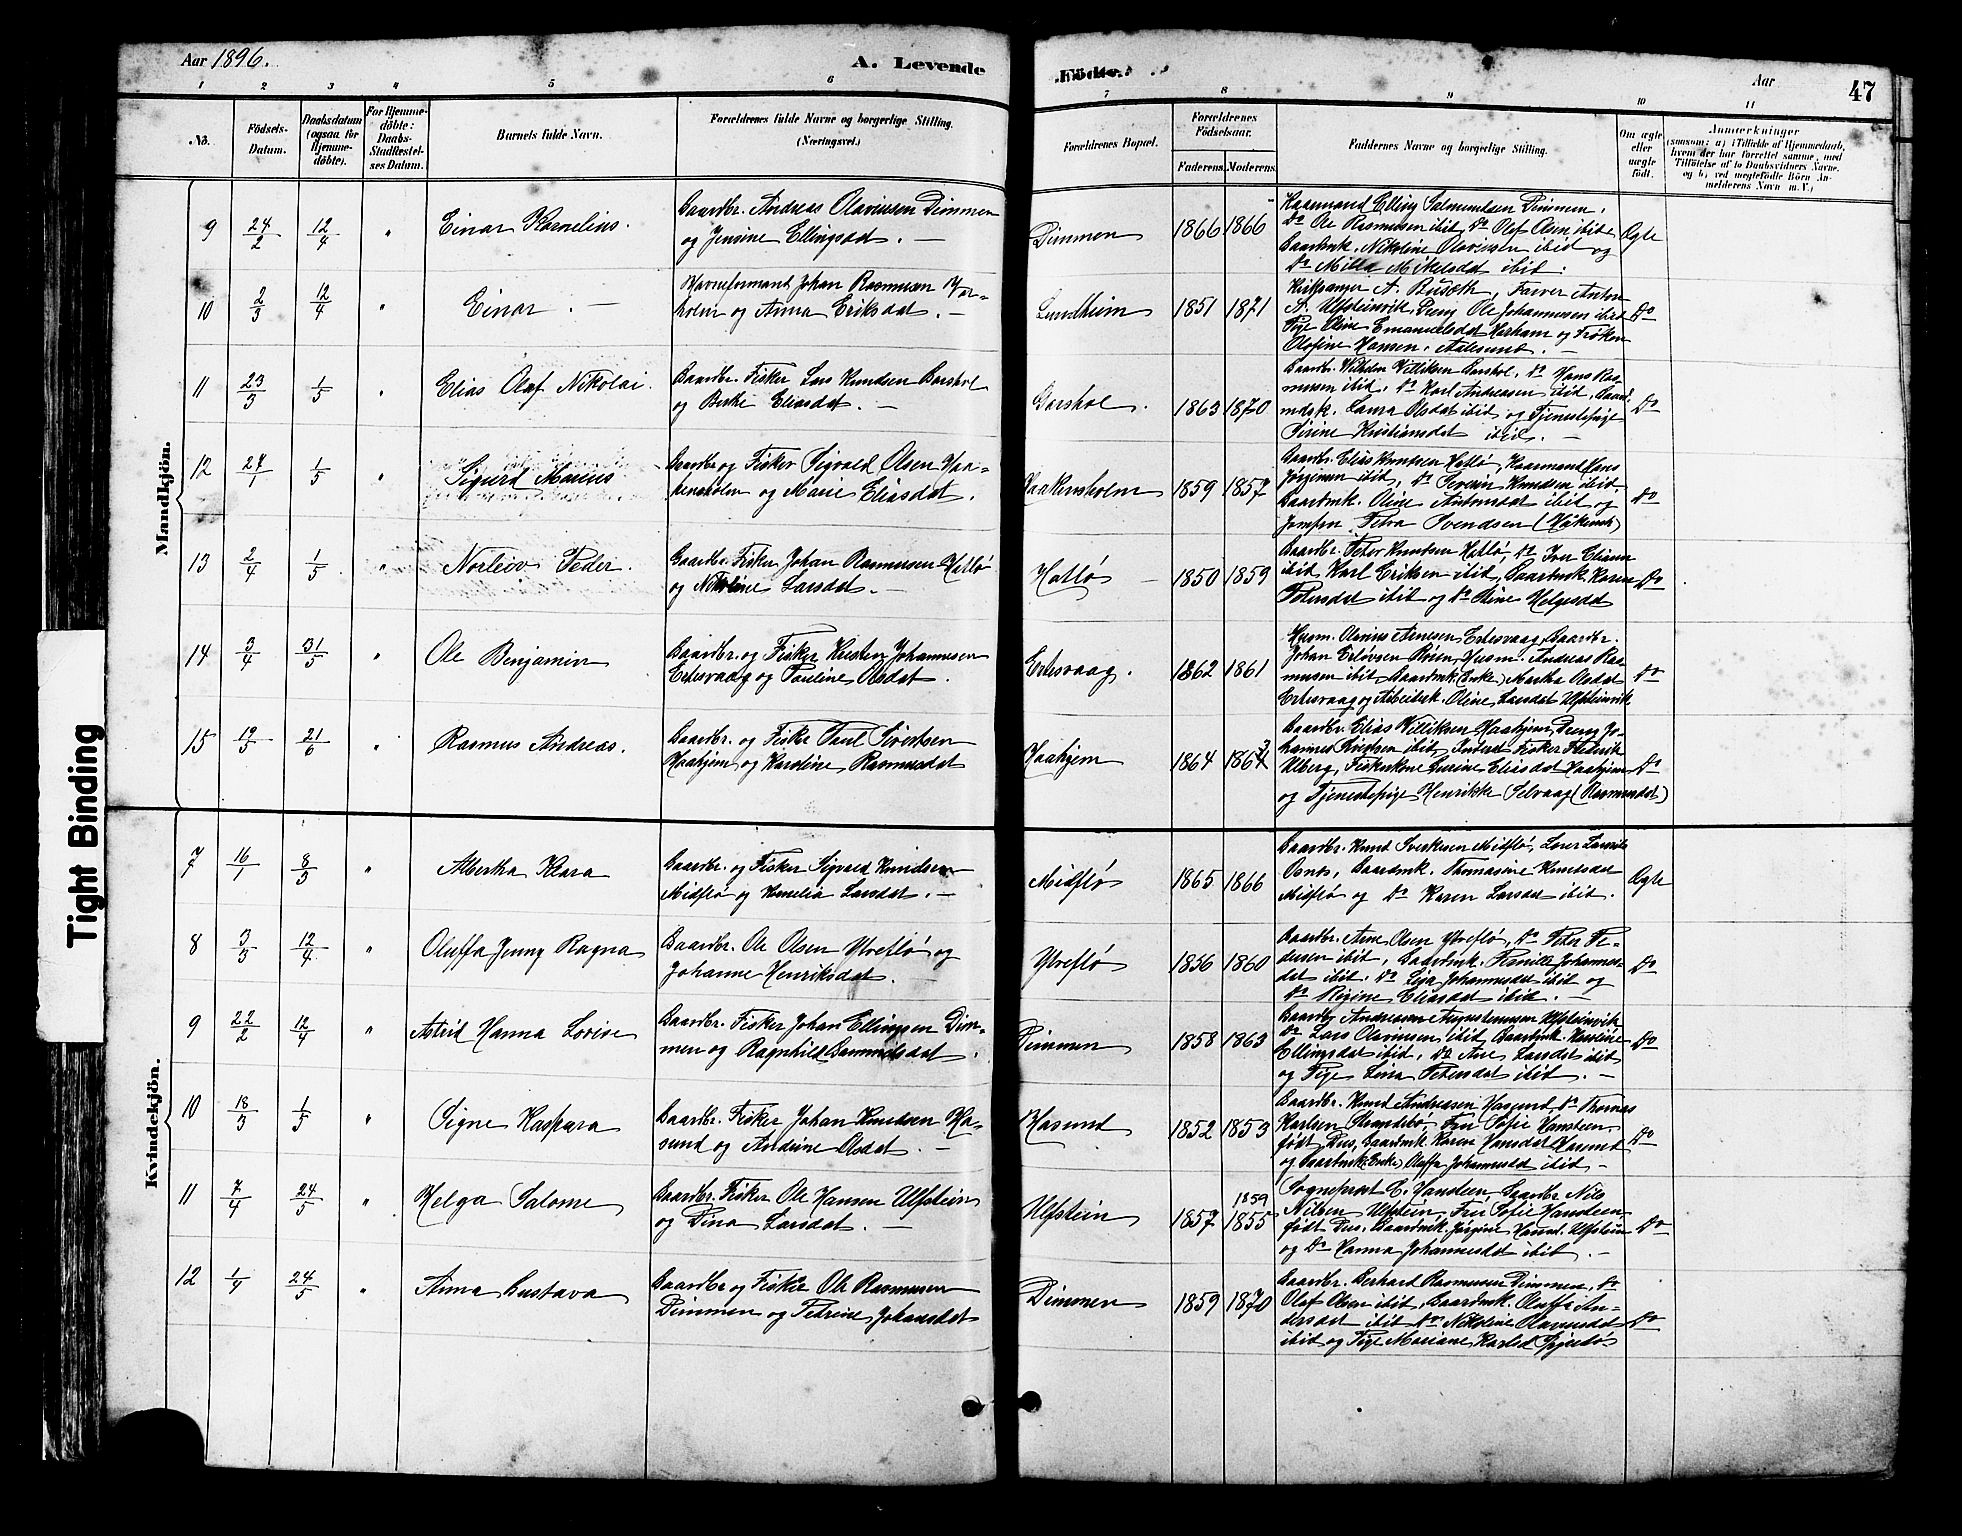 Aar 1896.
A. Levende
Födte.
Aar
47
1 2 3 4 5 6 7 8 9 10 11
No.
Födsels-Datum.
Daabsdatum (ogsaa for Hjemmedöbte).
For Hjemmedöbte: Daabs-Stadfæstelses Datum.
Barnets fulde Navn.
Forældrenes fulde Navne og borgerlige Stilling. (Næringsvei.)
Forældrenes Bopæl.
Forældrenes Födselsaar.
Faderens. Moderens.
Faddernes Navne og borgerlige Stilling.
Om ægte eller uægte födt.
Anmærkninger
(saasom: a) i Tilfælde af Hjemmedaab, hvem der har forrettet samme, med Tilföielse af to Daabsvidners Navne, og b) ved uægtefödte Börn Anmelderens Navn m. V.)
Mandkjön.
9 24/2 12/4 " Einar Kornelius.
Gaardbr. Andreas Olavussen Dimmen
og Jensine Ellingsdat. —
Dimmen 1866 1866
Kaarmand Elling Salmundsen Dimmen,
Do Ole Rasmussen ibid, Do Olof Olsen ibid
Gaardmk. Nikoline Olavussen ibid og
Do Milla Mikelsdat ibid.
Ægte
10 2/3 12/4 " Einar —
Havneformand Johan Rasmussen
holm og Anna Eriksdat. —
Lundheim 1851 1871
Kirksanger A. Busæth, Farver Anton
A. Ulfsteinvik, Dreng Ole Johannessen ibid
Pige Oline Emanuelsdat Harham og Frøken
Olofine Hansen, Aalesund. —
Do
11 23/3 1/5 " Elias Olaf Nikolai.
Gaardbr. Fisker Lars Knudsen Garshol
og Berthe Eliasdat. —
Garshol. 1863 1870
Gaardbr. Vilhelm Villiksen Garshol, Do Hans Ras-
mussen ibid, Do Karl Andreassen ibid, Gaard-
mdsk. Laura Olsdat ibid og Tjenestepige
Sirine Kristiansdat ibid. —
Do
12 27/1 1/5 " Sigurd Marius
Gaardbr og Fisker Sigvald Olsen Haa-
kensholm og Marie Eliasdat.
Haakensholm 1859 1857
Gaardbr. Elias Knudsen Hatlø, Kaarmand Hans
Jørgensen ibid, Do Severin Knudsen ibid,
Gaardmk. Oline Antonsdat ibid og
Jomfru Petra Svendsen (Håkensh)
Do
13 2/4 1/5 " Norleiv Peder.
Gaardbr. Fisker Johan Rasmussen Hatlø
og Nikoline Larsdat. —
Hatlø — 1850 1859
Gaardbr. Peter Knudsen Hatlø, Do Iver Eliassen
ibid Karl Eriksen ibid, Gaardmk. Karen
Petersdat ibid og Do Stine Helgesdat
Do
14 3/4 31/5 " Ole Benjamin
Gaardbr. og Fisker Kristen Johannessen
Ertesvaag og Pauline Olsdat.
Ertesvaag. 1862 1861
Husm. Olavus Arnesen Ertesvaag, Gaardbr.
Johan Erlovsen Røren, Husm. Andreas Ras-
mussen ibid Gaardmk (Enke) Martha Olsdat
Ertesvaag og Arbeidsk. Oline Larsdat Ulfsteinvik
Do
15 19/5 21/6 " Rasmus Andreas.
Gaardbr. og Fisker Paul Sivertsen
Haahjem og Karoline Rasmusdat
Haahjem 1864 1864 3
Gaardbr. Elias Villiksen Haahjem, Dreng Jo-
hannes Knudsen ibid, Inderst Fisker Frederik
Ulberg, Fiskerkone Severine Eliasdat Haahjem
og Tjenestepige Henrikke Selvaag (Rasmusdat)
Do
Kvindekjön.
7 16/1 8/3 " Albertha Klara
Gaardbr. og Fisker Sigvald Knudsen
Midflø og Kornelia Larsdat. —
Midflø 1865 1866
Gaardbr. Knud Sivertsen Midflø, Lærer Laurits
Osnes, Gaardmk. Thomasine Knudsdat
Midflø og Do Karen Larsdat ibid.
Ægte
8 3/3 12/4 " Oluffa Jenny Ragna
Gaardbr. Ole Olsen Ytreflø og
Johanne Henriksdat. —
Ytreflø 1856 1860
Gaardbr. Arne Olsen Ytreflø, Do Peter Pe-
dersen ibid, Gaardmk. Pernille Johannes-
dat ibid. Do Lisa Johannesdat ibid og
Do Regine Eliasdat ibid. —
Do
9 22/2 12/4 " Astrid Hanna Lovise
Gaardbr. Fisker Johan Ellingsen Dim-
men og Ragnhild Samuelsdat.
Dimmen 1858 1863
Gaardbr Andreas Augustinussen Ulfsteinvik
Do Lars Olavussen ibid Gaardmk. Karoline
Ellingsdat ibid, Do Ane Larsdat ibid
og Pige Lina Petersdat ibid. —
Do
10 18/3 1/5 " Signe Kaspara
Gaardbr. Fisker Johan Knudsen Ha-
sund og Andrine Olsdat. —
Hasund 1852 1853
Gaardbr. Knud Andreassen Hasund, Do Thomas
Karlsen Strandabø, Fru Sofie Hansteen,
født Dus, Gaardmk. Karen Hansdat Hasund
og Gaardmk. (Enke) Oluffa Johannesdat ibid —
Do
11 7/4 24/5 " Helga Salome
Gaardbr. Fisker Ole Hansen Ulfstein
og Dina Larsdat. —
Ulfstein 1857 1855 1859
Sogneprest C. Hansteen, Gaardbr Nils
Nilsen Ulfstein, Fru Sofie Hansteen
født Dus. Gaardmk. Jørgine Hansd. Ulfstein
og Do Hanna Johannesdat ibid. —
Do
12 1/4 24/5 " Anna Gustava
Gaardbr og Fisker Ole Rasmussen
Dimmen og Petrine Johansdat
Dimmen 1859 1870
Gaardbr. Berhard Rasmussen Dimmen, Do
Olaf Olsen ibid, Gaardmk. Oluffa An-
dersdat ibid Do Nikoline Olavusdat
ibid og Pige Mariane Karlsd Gjerdø
Do
Tight Binding